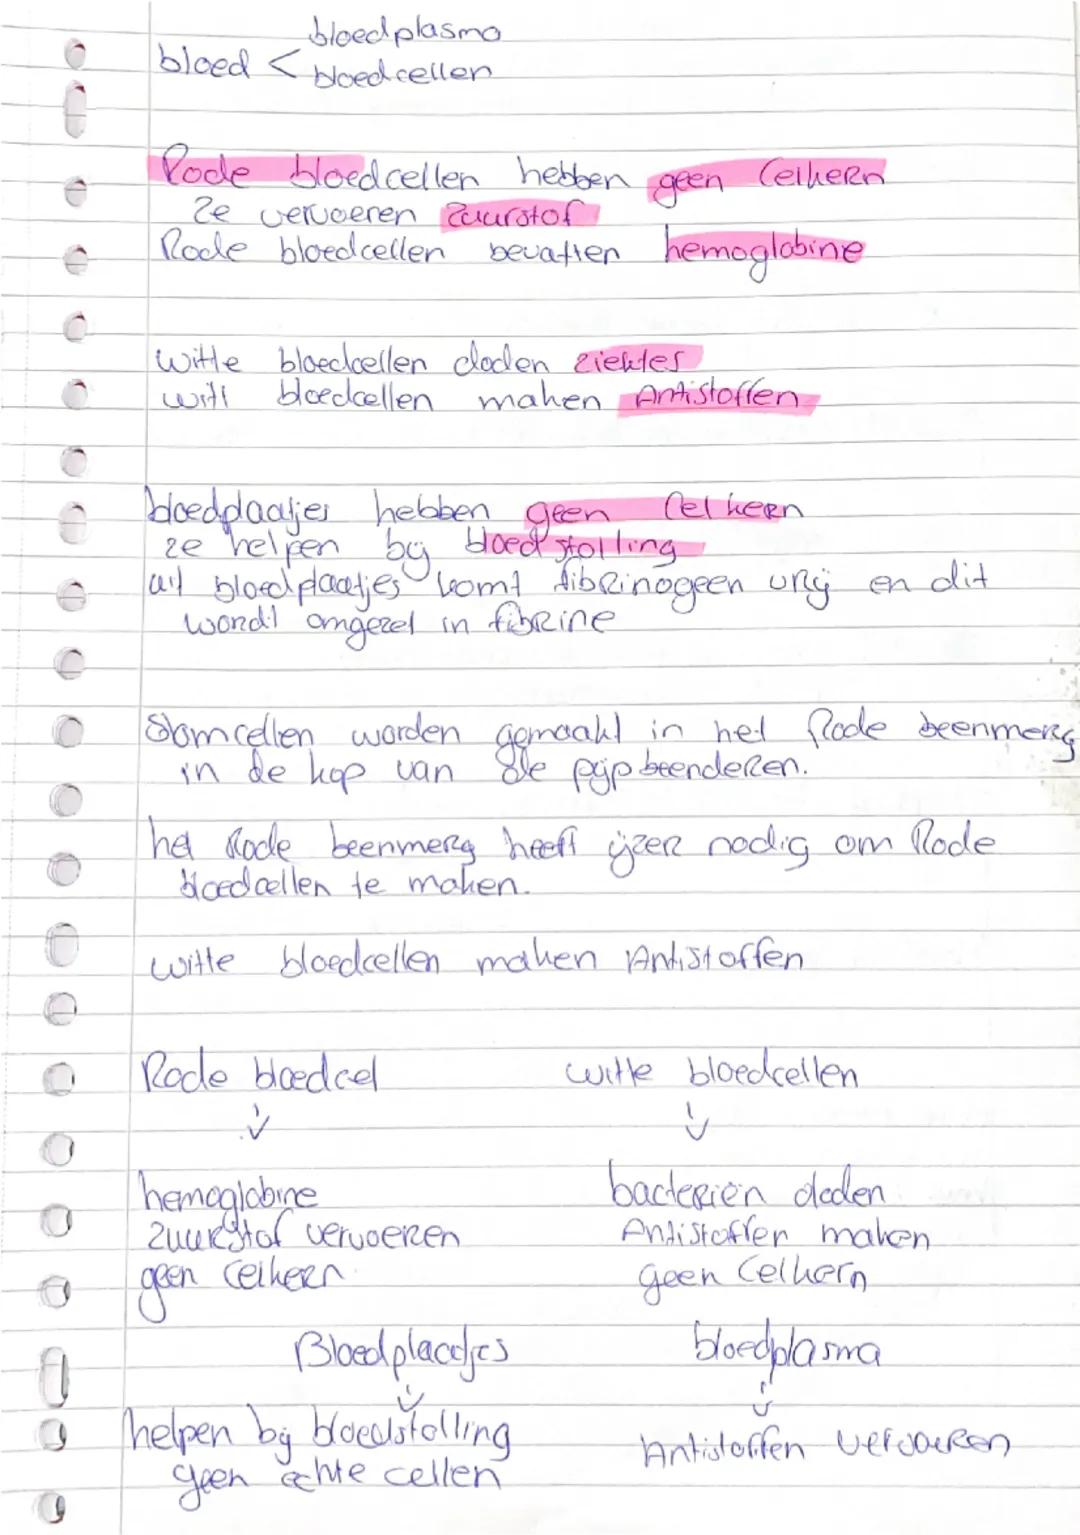 bloedplasma
bloed < bloedcellen
Rode bloedcellen hebben geen Celkern
Ze vervoeren Zuurstof
Rode bloedcellen bevatten hemoglobine
witte bloedcellen doden ziektes
witt bloedcellen maken Antistoffen
bloedplaatjes hebben geen Celkern
ze helpen bij bloedstolling
uit bloedplaatjes komt fibrinogeen vrij en dit
wordt omgezet in fibrine
Stamcellen worden gemaakt in het Rode beenmerg
in de kop van de pijpbeenderen.
het Rode beenmerg heeft ijzer nodig om Rode
bloedcellen te maken.
witte bloedcellen maken Antistoffen
Rode bloedcel witte bloedcellen
hemoglobine bacteriën doden
Zuurstof vervoeren Antistoffen maken
geen celkern geen Celkern
Bloedplaatjes bloedplasma
helpen bij bloedstolling Antistoffen vervoeren
geen echte cellen